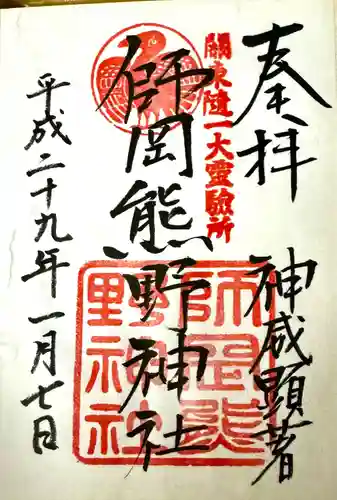 奉拝
神威顕著
關東隨一大靈驗所
師岡熊野神社
師岡熊野神社
平成二十九年一月七日